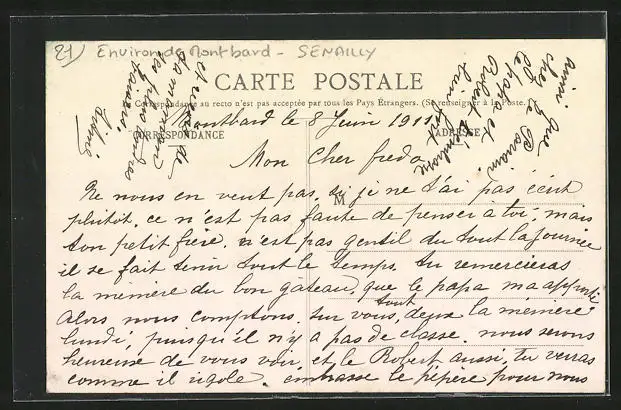 21) Environ de Montbard - SENAILLY
CARTE POSTALE
Correspondance au recto n'est pas acceptée par tous les Pays Étrangers. (Se renseigner à la Poste.)
Montbard le 8 Juin 1911
CORRESPONDANCE
ADRESSE
Mon Cher freda
M
Ne nous en veut pas, si je ne t'ai pas écrit
plutôt, ce n'est pas faute de penser à toi; mais
ton petit frère, n'est pas gentil du tout la journée
il se fait tenir tout le temps. tu remercieras
la mémère du bon gâteau, que le papa m'a apporté
Alors nous comptons sur vous tout deux la mémère
lundi, puisqu'il n'y a pas de classe. nous serons
heureuse de vous voir, et le Robert aussi, tu verras
comme il rigole. embrasse le pépère pour nous
ainsi que
chez le Parrain
le papa et
Robert t'embrasse
bien fort
et reçois de
ta maman